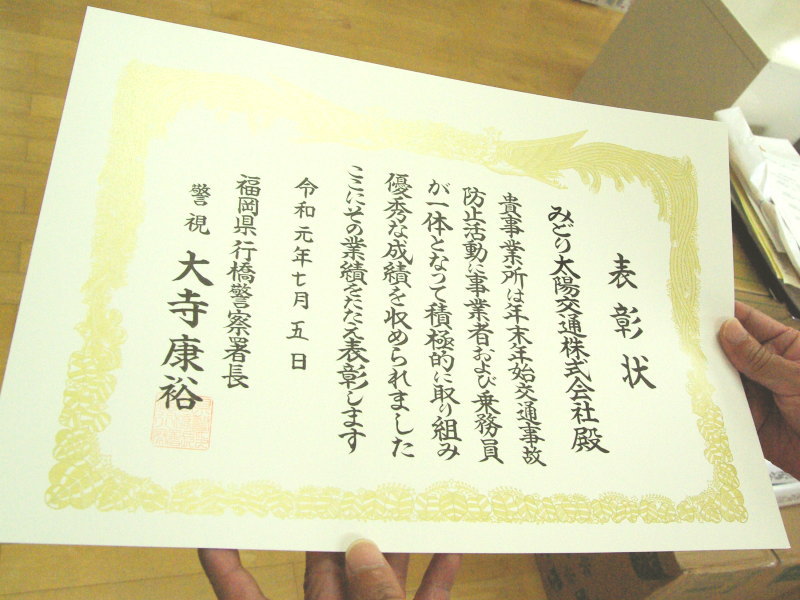 表彰状
みどり太陽交通株式会社殿
貴事業所は年末年始交通事故
防止活動に事業者および乗務員
が一体となって積極的に取り組み
優秀な成績を収められました
ここにその業績をたたえ表彰します
令和元年七月五日
福岡県行橋警察署長
警視 大寺康裕